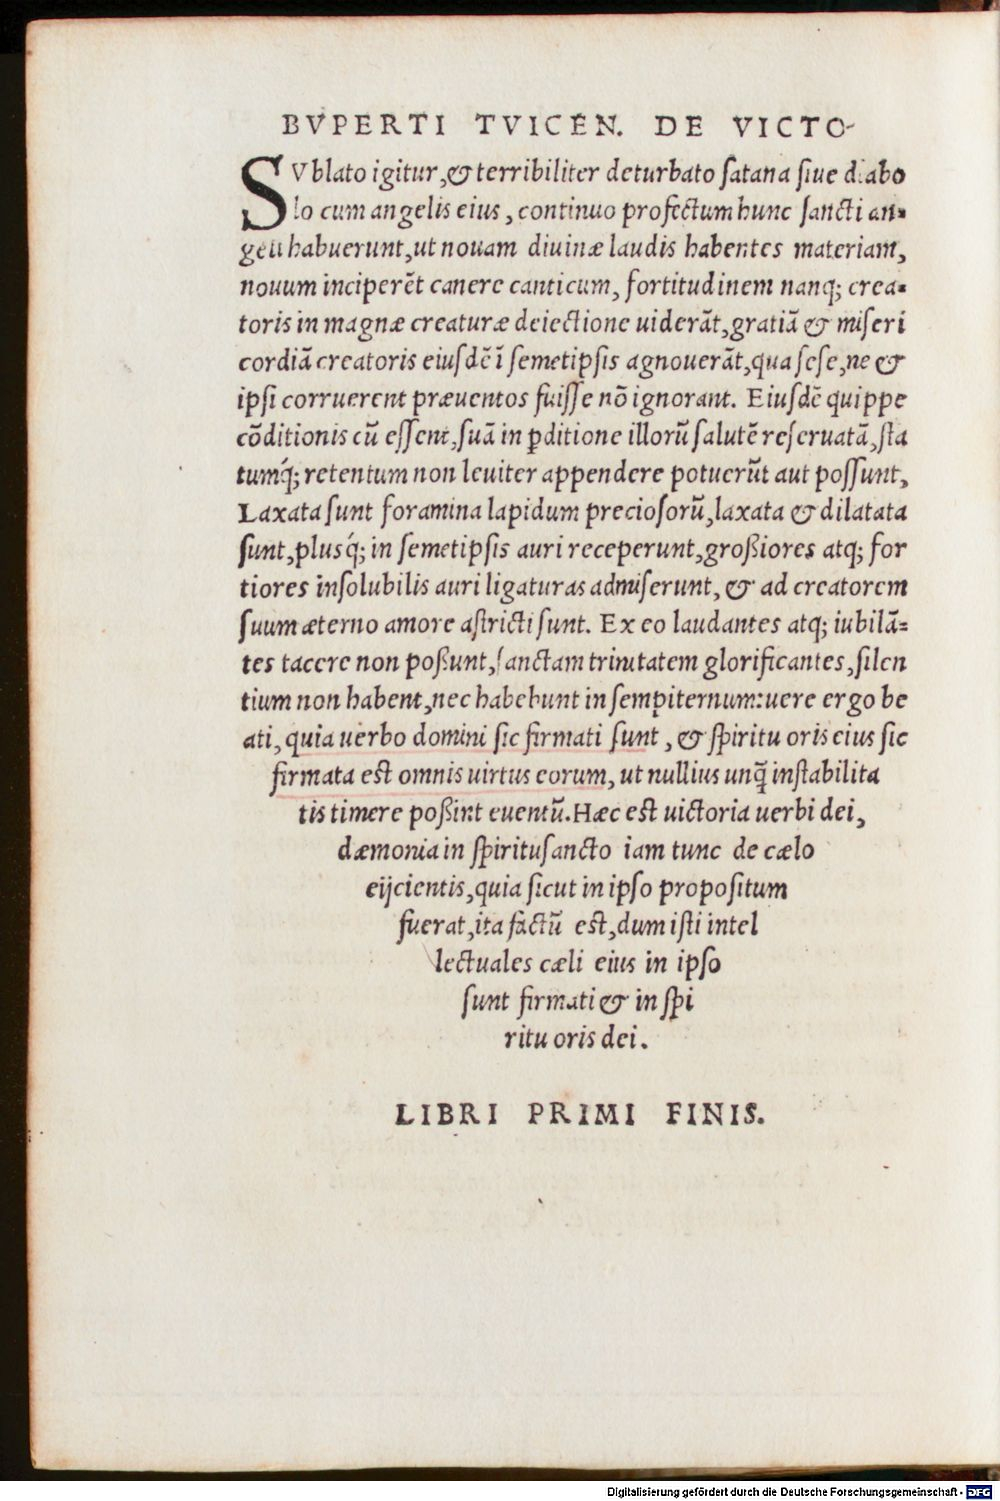 BVPERTI TVICEN. DE VICTO-
SVblato igitur,& terribiliter deturbato satana siue diabo
lo cum angelis eius, continuo profectum hunc sancti an-
geli habuerunt, ut nouam diuinæ laudis habentes materiam,
nouum inciperẽt canere canticum, fortitudinem nanq; crea-
toris in magnæ creaturæ deiectione uiderãt, gratiã & miseri
cordiã creatoris eiusdẽ ĩ semetipsis agnouerãt, qua sese, ne &
ipsi corruerent præuentos fuisse nõ ignorant. Eiusdẽ quippe
cõditionis cũ essent, suã in p̱ditione illorũ salutẽ reseruatã, sta
tumq́; retentum non leuiter appendere potuerũt aut possunt,
Laxata sunt foramina lapidum preciosorũ, laxata & dilatata
sunt, plusq́; in semetipsis auri receperunt, großiores atq; for
tiores insolubilis auri ligaturas admiserunt, & ad creatorem
suum æterno amore astricti sunt. Ex eo laudantes atq; iubilã-
tes tacere non poßunt, sanctam trinitatem glorificantes, silen
tium non habent, nec habebunt in sempiternum: uere ergo be
ati, quia uerbo domini sic firmati sunt, & spiritu oris eius sic
firmata est omnis uirtus eorum, ut nullius unq̃ instabilita
tis timere poßint euentũ. Hæc est uictoria uerbi dei,
dæmonia in spiritusancto iam tunc de cælo
eijcientis, quia sicut in ipso propositum
fuerat, ita factũ est, dum isti intel
lectuales cæli eius in ipso
sunt firmati & in spi
ritu oris dei.
LIBRI PRIMI FINIS.
Digitalisierung gefördert durch die Deutsche Forschungsgemeinschaft - DFG